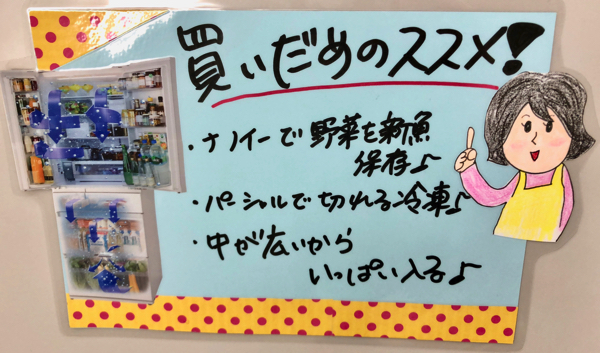 買いだめのススメ!
・ナノイーで野菜を新魚
保存♪
・パーシャルで切れる冷凍♪
・中が広いから
いっぱい入る♪